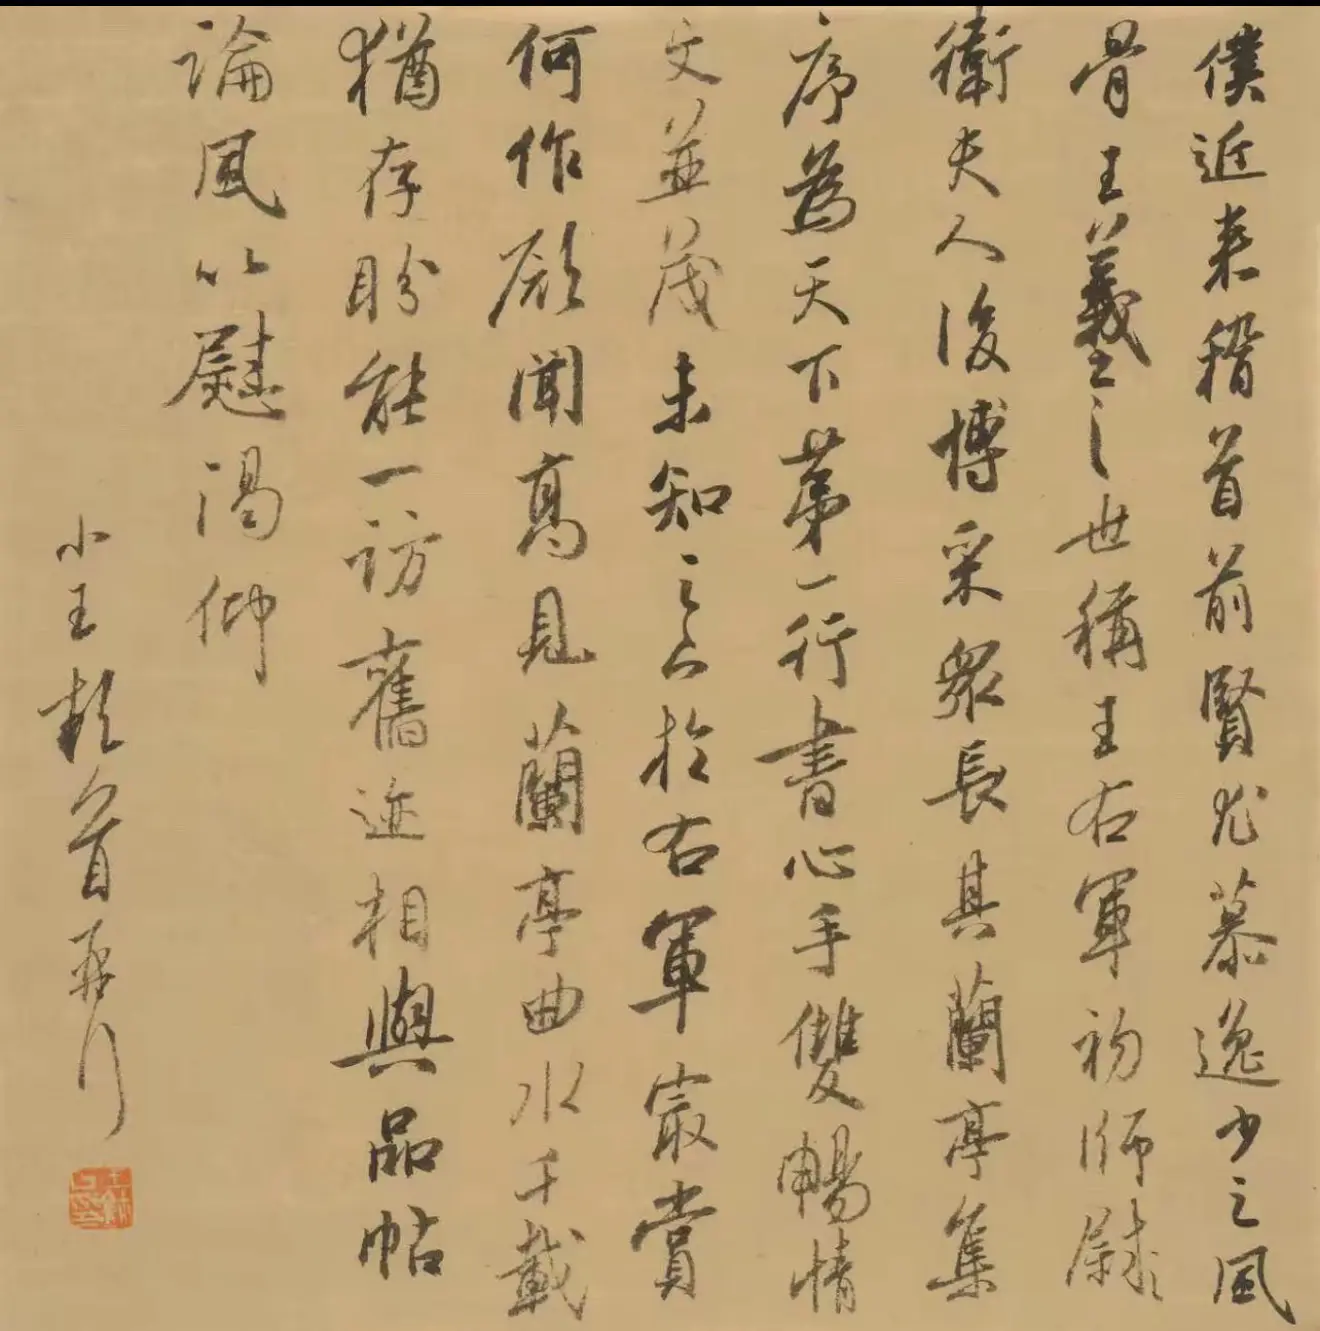 僕近来稽首前賢尤慕逸少之風
骨王羲之之世稱王右軍初師尉
衛夫人後博采衆長其蘭亭集
序為天下第一行書心手雙暢情
文並茂未知之於右軍寂賞
何作願聞高見蘭亭曲水千載
猶存盼能一訪舊迹相與品帖
論風以慰渴仰
小王頓首再行